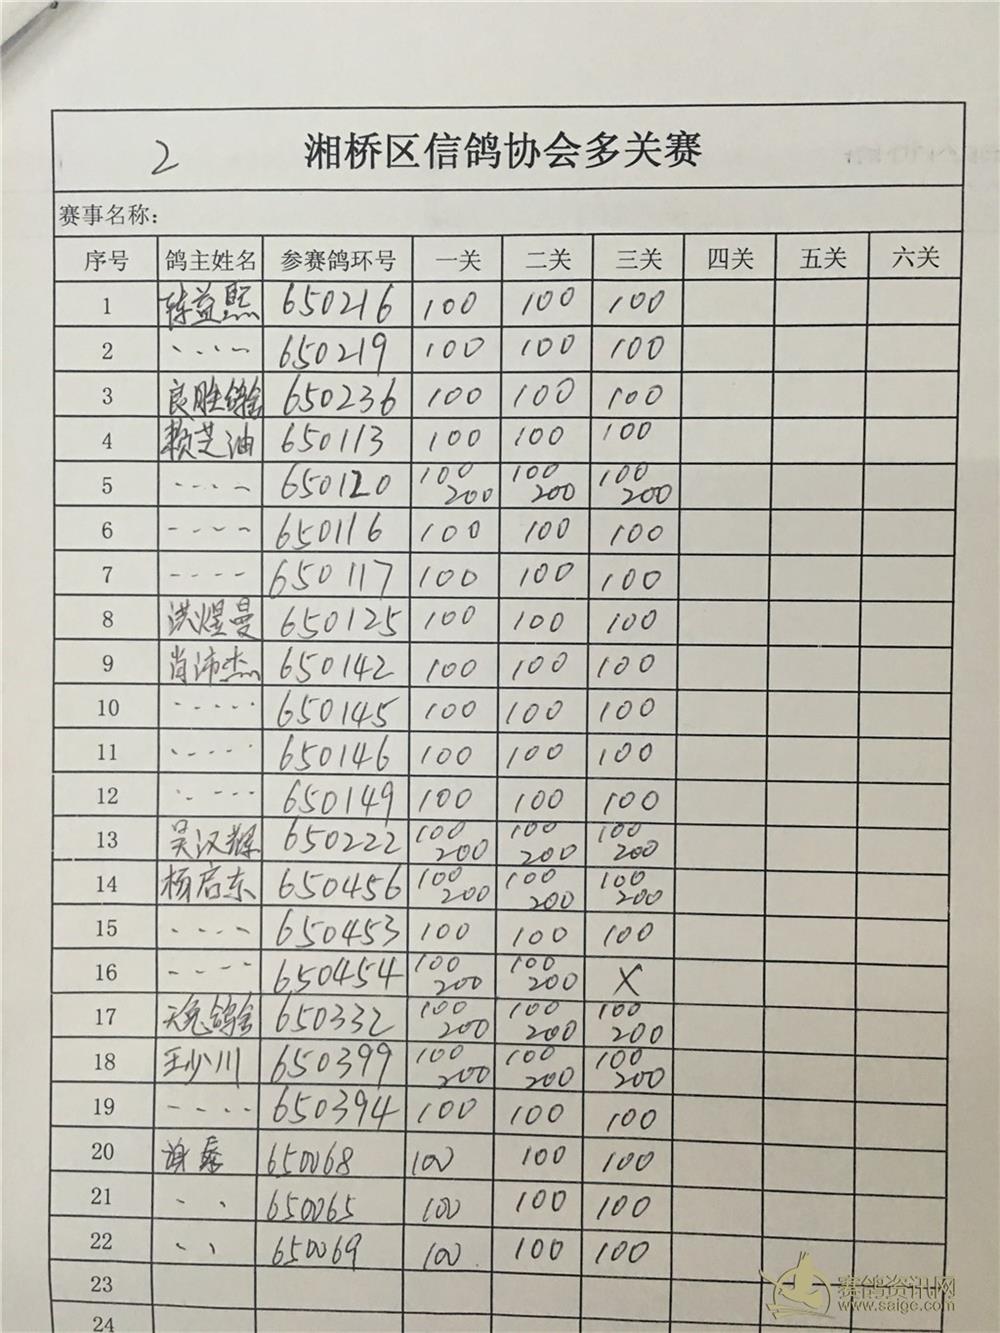 2 湘桥区信鸽协会多关赛
赛事名称：
序号 鸽主姓名 参赛鸽环号 一关 二关 三关 四关 五关 六关
1 陈益熙 650216 100 100 100
2 、、、、 650219 100 100 100
3 良胜鸽舍 650236 100 100 100
4 赖芝油 650113 100 100 100
5 、、、、 650120 100 200 100 200 100 200
6 、、、、 650116 100 100 100
7 、、、、 650117 100 100 100
8 洪煜曼 650125 100 100 100
9 肖沛杰 650142 100 100 100
10 、、、、、 650145 100 100 100
11 、、、、、 650146 100 100 100
12 、、、、、 650149 100 100 100
13 吴汉辉 650222 100 200 100 200 100 200
14 杨启东 650456 100 200 100 200 100 200
15 、、、、 650453 100 100 100
16 、、、、 650454 100 200 100 200 X
17 天兔鸽舍 650332 100 200 100 200 100 200
18 王少川 650399 100 200 100 200 100 200
19 、、、、 650394 100 100 100
20 650068 100 100 100
21 、、 650065 100 100 100
22 、、 650069 100 100 100
23
24
赛鸽资讯网
www.saige.com